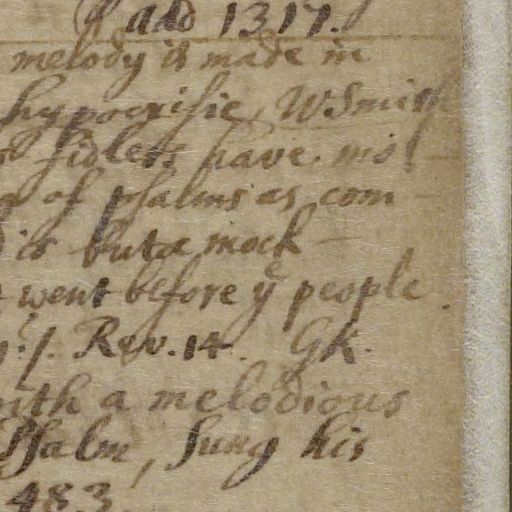 add 1317.
melody is made in
hypocrisie, W Smith
fidlers have mol-
of psalms as com-
is but a mock-
went before yᵉ people
Rev. 14. GK.
with a melodious
Psalm, Sung his
483.